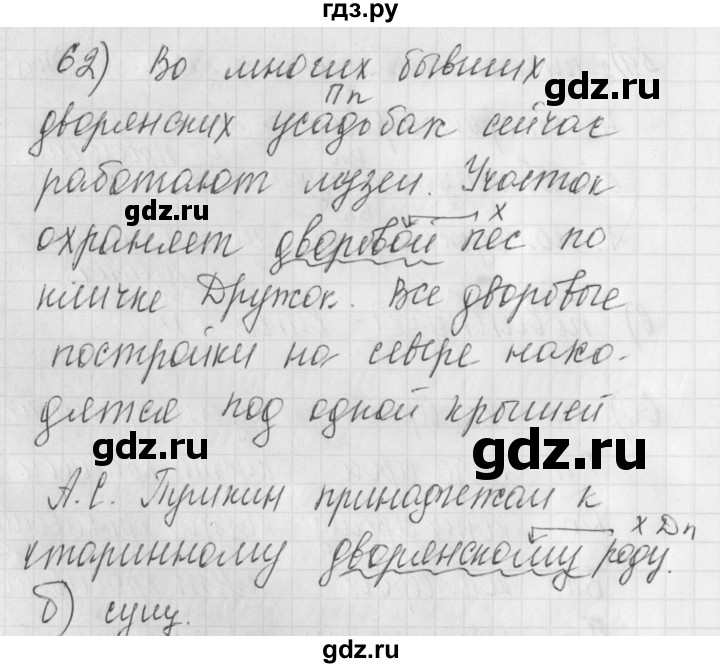 гдз.ру
62) Во многих бывших
Пп
дворянских усадьбах сейчас
gdz.ru
работают музеи. Участок
gdz.ru
х
охраняет дворовой пёс по
кличке Дружок. Все дворовые
постройки на севере нахо-
дятся под одной крышей
gdz.ru
gdz.ru
А.С. Пушкин принадлежал к
х Дп
старинному дворянскому роду.
б) сущ.
gdz.ru